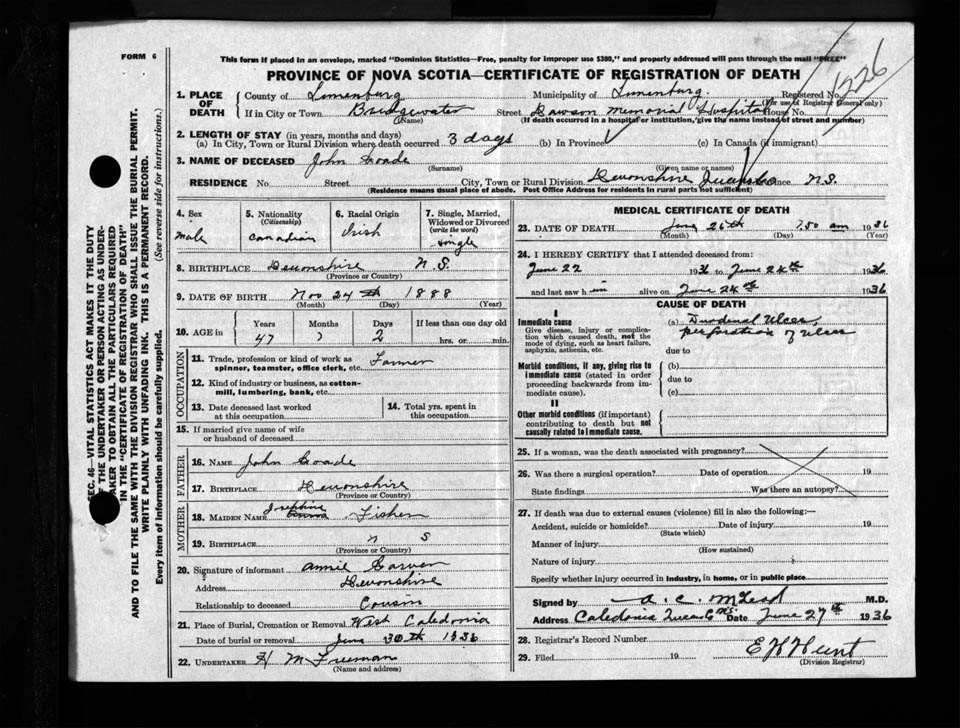 FORM 6
This form if placed in an envelope, marked "Dominion Statistics—Free, penalty for improper use $300," and properly addressed will pass through the mail "FREE"
PROVINCE OF NOVA SCOTIA—CERTIFICATE OF REGISTRATION OF DEATH
1226
1. PLACE OF DEATH
County of Lunenburg Municipality of Lunenburg. Registered No.
(For use of Registrar General only)
If in City or Town Bridgewater Street Dawson Memorial Hospital House No.
(Name) (If death occurred in a hospital or institution, give the name instead of street and number)
2. LENGTH OF STAY (in years, months and days)
(a) In City, Town or Rural Division where death occurred 3 days (b) In Province (c) In Canada (if immigrant)
3. NAME OF DECEASED John Coade
(Surname) (Given name or names)
RESIDENCE No. Street City, Town or Rural Division Devonshire Province N.S.
(Residence means usual place of abode. Post Office Address for residents in rural parts not sufficient)
4. Sex male
5. Nationality (Citizenship) Canadian
6. Racial Origin Irish
7. Single, Married, Widowed or Divorced (write the word) Single
8. BIRTHPLACE Devonshire N.S.
(Province or Country)
9. DATE OF BIRTH Nov 24th 1888
(Month) (Day) (Year)
10. AGE in Years Months Days If less than one day old
47 7 2 hrs. or min.
OCCUPATION
11. Trade, profession or kind of work as spinner, teamster, office clerk, etc. Farmer
12. Kind of industry or business, as cotton-mill, lumbering, bank, etc.
13. Date deceased last worked at this occupation
14. Total yrs. spent in this occupation
15. If married give name of wife or husband of deceased
FATHER
16. NAME John Coade
17. BIRTHPLACE Devonshire
(Province or Country)
MOTHER
18. MAIDEN NAME Josephine Fisher
19. BIRTHPLACE N S
(Province or Country)
20. Signature of informant Annie Carver
Address Devonshire
Relationship to deceased Cousin
21. Place of Burial, Cremation or Removal West Caledonia
Date of burial or removal June 30th 1936
22. UNDERTAKER H M Freeman
(Name and address)
MEDICAL CERTIFICATE OF DEATH
23. DATE OF DEATH June 26th 7.50 am 1936
(Month) (Day) (Year)
24. I HEREBY CERTIFY that I attended deceased from:
June 22 1936 to June 24th 1936
and last saw him alive on June 24th 1936
CAUSE OF DEATH
I
Immediate cause
Give disease, injury or complication which caused death, not the mode of dying, such as heart failure, asphyxia, asthenia, etc.
(a) Duodenal Ulcer,
perforation of ulcer
due to
Morbid conditions, if any, giving rise to immediate cause (stated in order proceeding backwards from immediate cause).
(b)
due to
(c)
II
Other morbid conditions (if important) contributing to death but not causally related to immediate cause.
25. If a woman, was the death associated with pregnancy?
26. Was there a surgical operation? Date of operation 19
State findings Was there an autopsy?
27. If death was due to external causes (violence) fill in also the following:—
Accident, suicide or homicide? Date of injury 19
(State which)
Manner of injury
(How sustained)
Nature of injury
Specify whether injury occurred in industry, in home, or in public place
Signed by A. C. McLeod M.D.
Address Caledonia Queens Co NS. Date June 27th 1936
28. Registrar's Record Number
29. Filed 19 E H Hunt
(Division Registrar)
SEC. 46—VITAL STATISTICS ACT MAKES IT THE DUTY
OF THE UNDERTAKER OR PERSON ACTING AS UNDER-
TAKER TO OBTAIN ALL THE PARTICULARS REQUIRED
IN THE "CERTIFICATE OF REGISTRATION OF DEATH"
AND TO FILE THE SAME WITH THE DIVISION REGISTRAR WHO SHALL ISSUE THE BURIAL PERMIT.
WRITE PLAINLY WITH UNFADING INK. THIS IS A PERMANENT RECORD.
Every item of information should be carefully supplied. (See reverse side for instructions.)